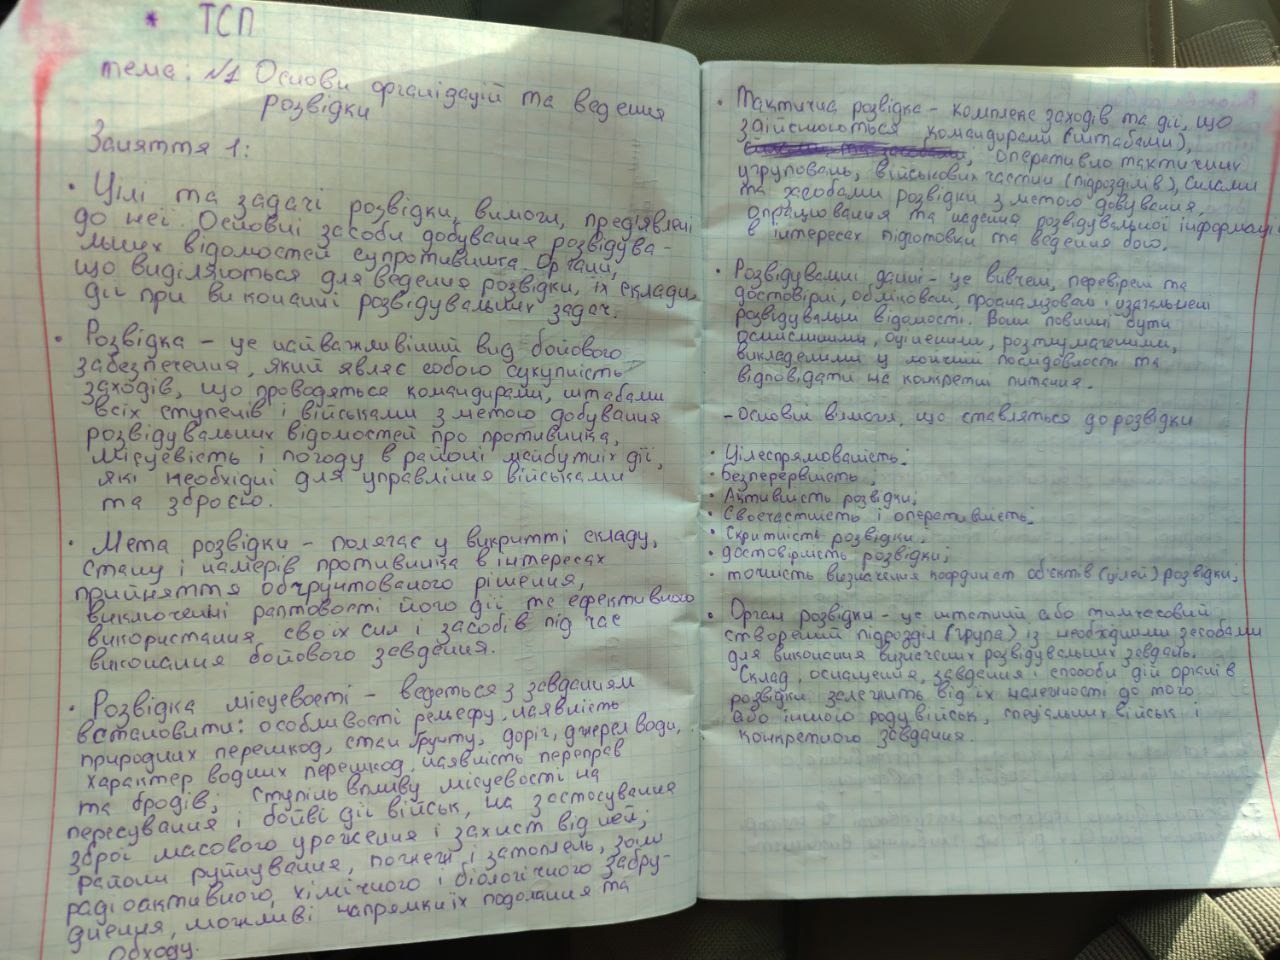 * ТСП
тема: №1 Основи організацій та ведення
розвідки
Заняття 1:
• Цілі та задачі розвідки, вимоги, пред'явлені
до неї. Основні засоби добування розвідува-
льних відомостей супротивника. Органи,
що виділяються для ведення розвідки, їх склади,
дії при виконанні розвідувальних задач.
• Розвідка – це найважливіший вид бойового
забезпечення, який являє собою сукупність
заходів, що проводяться командирами, штабами
всіх ступенів і військами з метою добування
розвідувальних відомостей про противника,
місцевість і погоду в районі майбутніх дій,
які необхідні для управління військами
та зброєю.
• Мета розвідки – полягає у викритті складу,
стану і намерів противника в інтересах
прийняття обґрунтованого рішення,
виключенні раптовості його дій те ефективного
використання своїх сил і засобів під час
виконання бойового завдання.
• Розвідка місцевості – ведеться з завданням
встановити: особливості рельєфу, наявність
природних перешкод, стан ґрунту, доріг, джерел води,
характер водних перешкод, наявність переправ
та бродів; ступіль впливу місцевості на
пересування і бойві дії військ, на застосування
зброї масового ураження і захист від ней;
райони руйнування, пожеж і затоплень, зони
радіоактивного, хімічного і біологічного забру-
днення, можливі напрямки їх подолання та
обходу.
• Тактична розвідка – комплекс заходів та дії, що
здійснюються командирами (штабами),
оперативно тактичних
угруповань, військових частин (підрозділів), силами
та засобами розвідки з метою добування,
опрацювання та надання розвідувальної інформації
в інтересах підготовки та ведення бою.
• Розвідувальні данні – це вивчені, перевірені та
достовірні, обліковані, проаналізовані і узагальнені
розвідувальні відомості. Вони повинні бути
осмисленими, оціненими, розтлумаченими,
викладеними у логічній послідовності та
відповідати на конкретні питання.
– Основні вимоги, що ставляться до розвідки
• Цілеспрямованість;
• Безперервність;
• Активність розвідки;
• Своєчастність і оперативність;
• Скритність розвідки;
• достовірність розвідки;
• точність визначення координат об'єктів (цілей) розвідки;
• Орган розвідки – це штатний або тимчасовий
створений підрозділ (група) із необхідними засобами
для виконання визначених розвідувальних завдань.
Склад, оснащення, завдання і способи дій органів
розвідки залежить від їх належності до того
або іншого роду військ, спеціальних військ і
конкретного завдання.